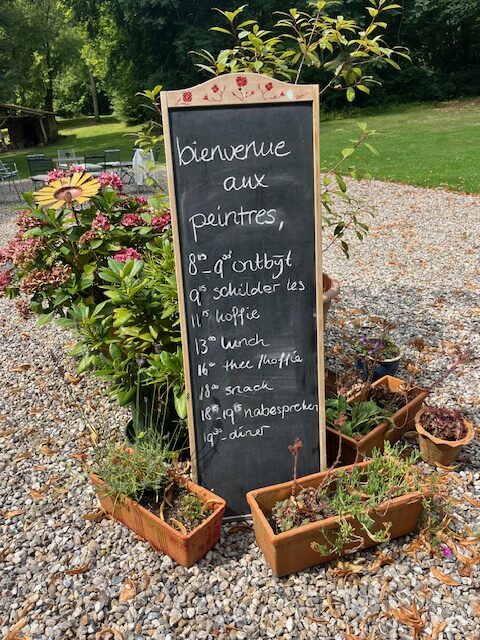 bienvenue
aux
peintres,
8¹⁵ - 9⁰⁰ ontbijt
9¹⁵ schilder les
11¹⁵ koffie
13⁰⁰ lunch
16⁰⁰ thee/koffie
18⁰⁰ snack
18¹⁵ - 19¹⁵ nabespreken
19³⁰ - diner